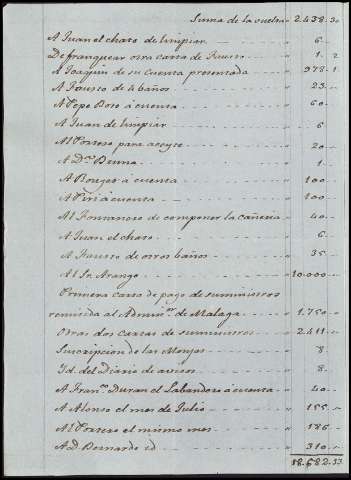 Suma de la vuelta " 2.438. 30
A Juan el chato de limpiar " 6 "
De franquear otra carta de Fausto " 1. 2
A Joaquin de su cuenta presentada " 978. 1
A Fausto de 4 baños " 23 "
A Pepe Boso á cuenta " 60 "
A Juan de limpiar " 6
Al Portero para aceyte " 20 "
A Dª Bruna " 1 "
A Rouget á cuenta " 100 "
A á cuenta " 100 "
Al Fontanero de componer la cañeria " 40 "
A Juan el chato " 6 "
A Fausto de otros baños " 35 "
Al Sr. Arango " 10.000 "
Primera carta de pago de suministros
remitida al Adminor. de Malaga " 1.750 "
Otras dos cartas de suministros " 2.411 "
Suscripcion de las Monjas " 8
Id. del Diario de avisos " 8 "
A Franco. Duran el Labandero á cuenta " 40 "
A Alonso el mes de Julio " 155 "
Al Portero el mismo mes " 186 "
A D. Bernardo id " 310 "
18.682. 33